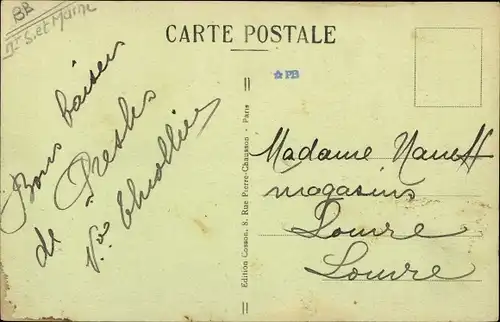 BB
nr S. et Marne
CARTE POSTALE
PB
Bons baisers
de Presles
Vve Thiollier
Edition Cosson, 8, Rue Pierre-Chausson - Paris
Madame
magasins
Louvre
Louvre